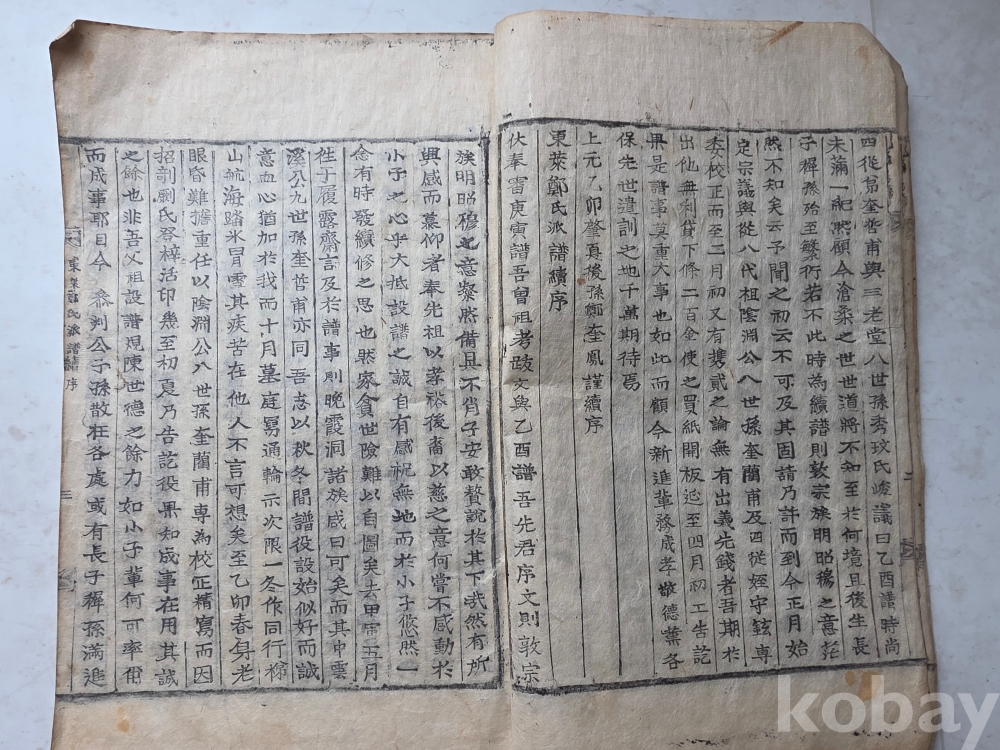 四從苐奎善甫與三老堂八世孫秀玟氏峻議曰乙酉譜時尚
未滿一紀然顧今滄桑之世世道將不知至於何境且後生長
子穉孫殆至繁衍若不此時為續譜則敦宗族明昭穆之意茫
然不知矣云予聞之初云不可及其固請乃許而到今正月始
定宗議與從八代祖陰淵公八世孫奎蘭甫及四從姪守鉉專
委校正而至二月初又有携貳之論無有出義先錢者吾期於
出他無利貸下條二百金使之買紙開板迄至四月初工告訖
果是譜事莫重大事也如此而顧今新進輩務成孝敬德業各
保先世遺訓之地千萬期待焉
上元乙卯肇夏後孫鄭奎鳳謹續序
東萊鄭氏派譜續序
伏奉審庚寅譜吾曾祖考跋文與乙酉譜吾先君序文則敦宗
族明昭穆之意粲然備具不肖子安敢贅說於其下哉然有所
興感而慕仰者奉先祖以孝裕後畜以慈之意何嘗不感動於
小子之心乎大抵設譜之誠自有感祝無地而於小子悠然一
念有時發續修之思也然家貧世險難以自圖矣去甲寅五月
徃于履露齋言及於譜事則晚霞洞諸族咸曰可矣而其中雲
溪公九世孫奎哲甫亦同吾志以秋冬間譜役設始似好而誠
意血心猶加於我而十月墓庭另通輪示次限一冬作同行梯
山航海踏氷冒雪其疾苦在他人不言可想矣至乙卯春身老
眼昏難擔重任以陰淵公八世孫奎蘭甫專為校正精寫而因
招剞劂氏登梓活印幾至初夏乃告訖役果知成事在用其誠
之餘也非吾父祖設譜現陳世德之餘力如小子輩何可率爾
而成事耶目今 叅判公子孫散在各處或有長子穉孫滿進
東萊鄭氏派譜 序 三
二